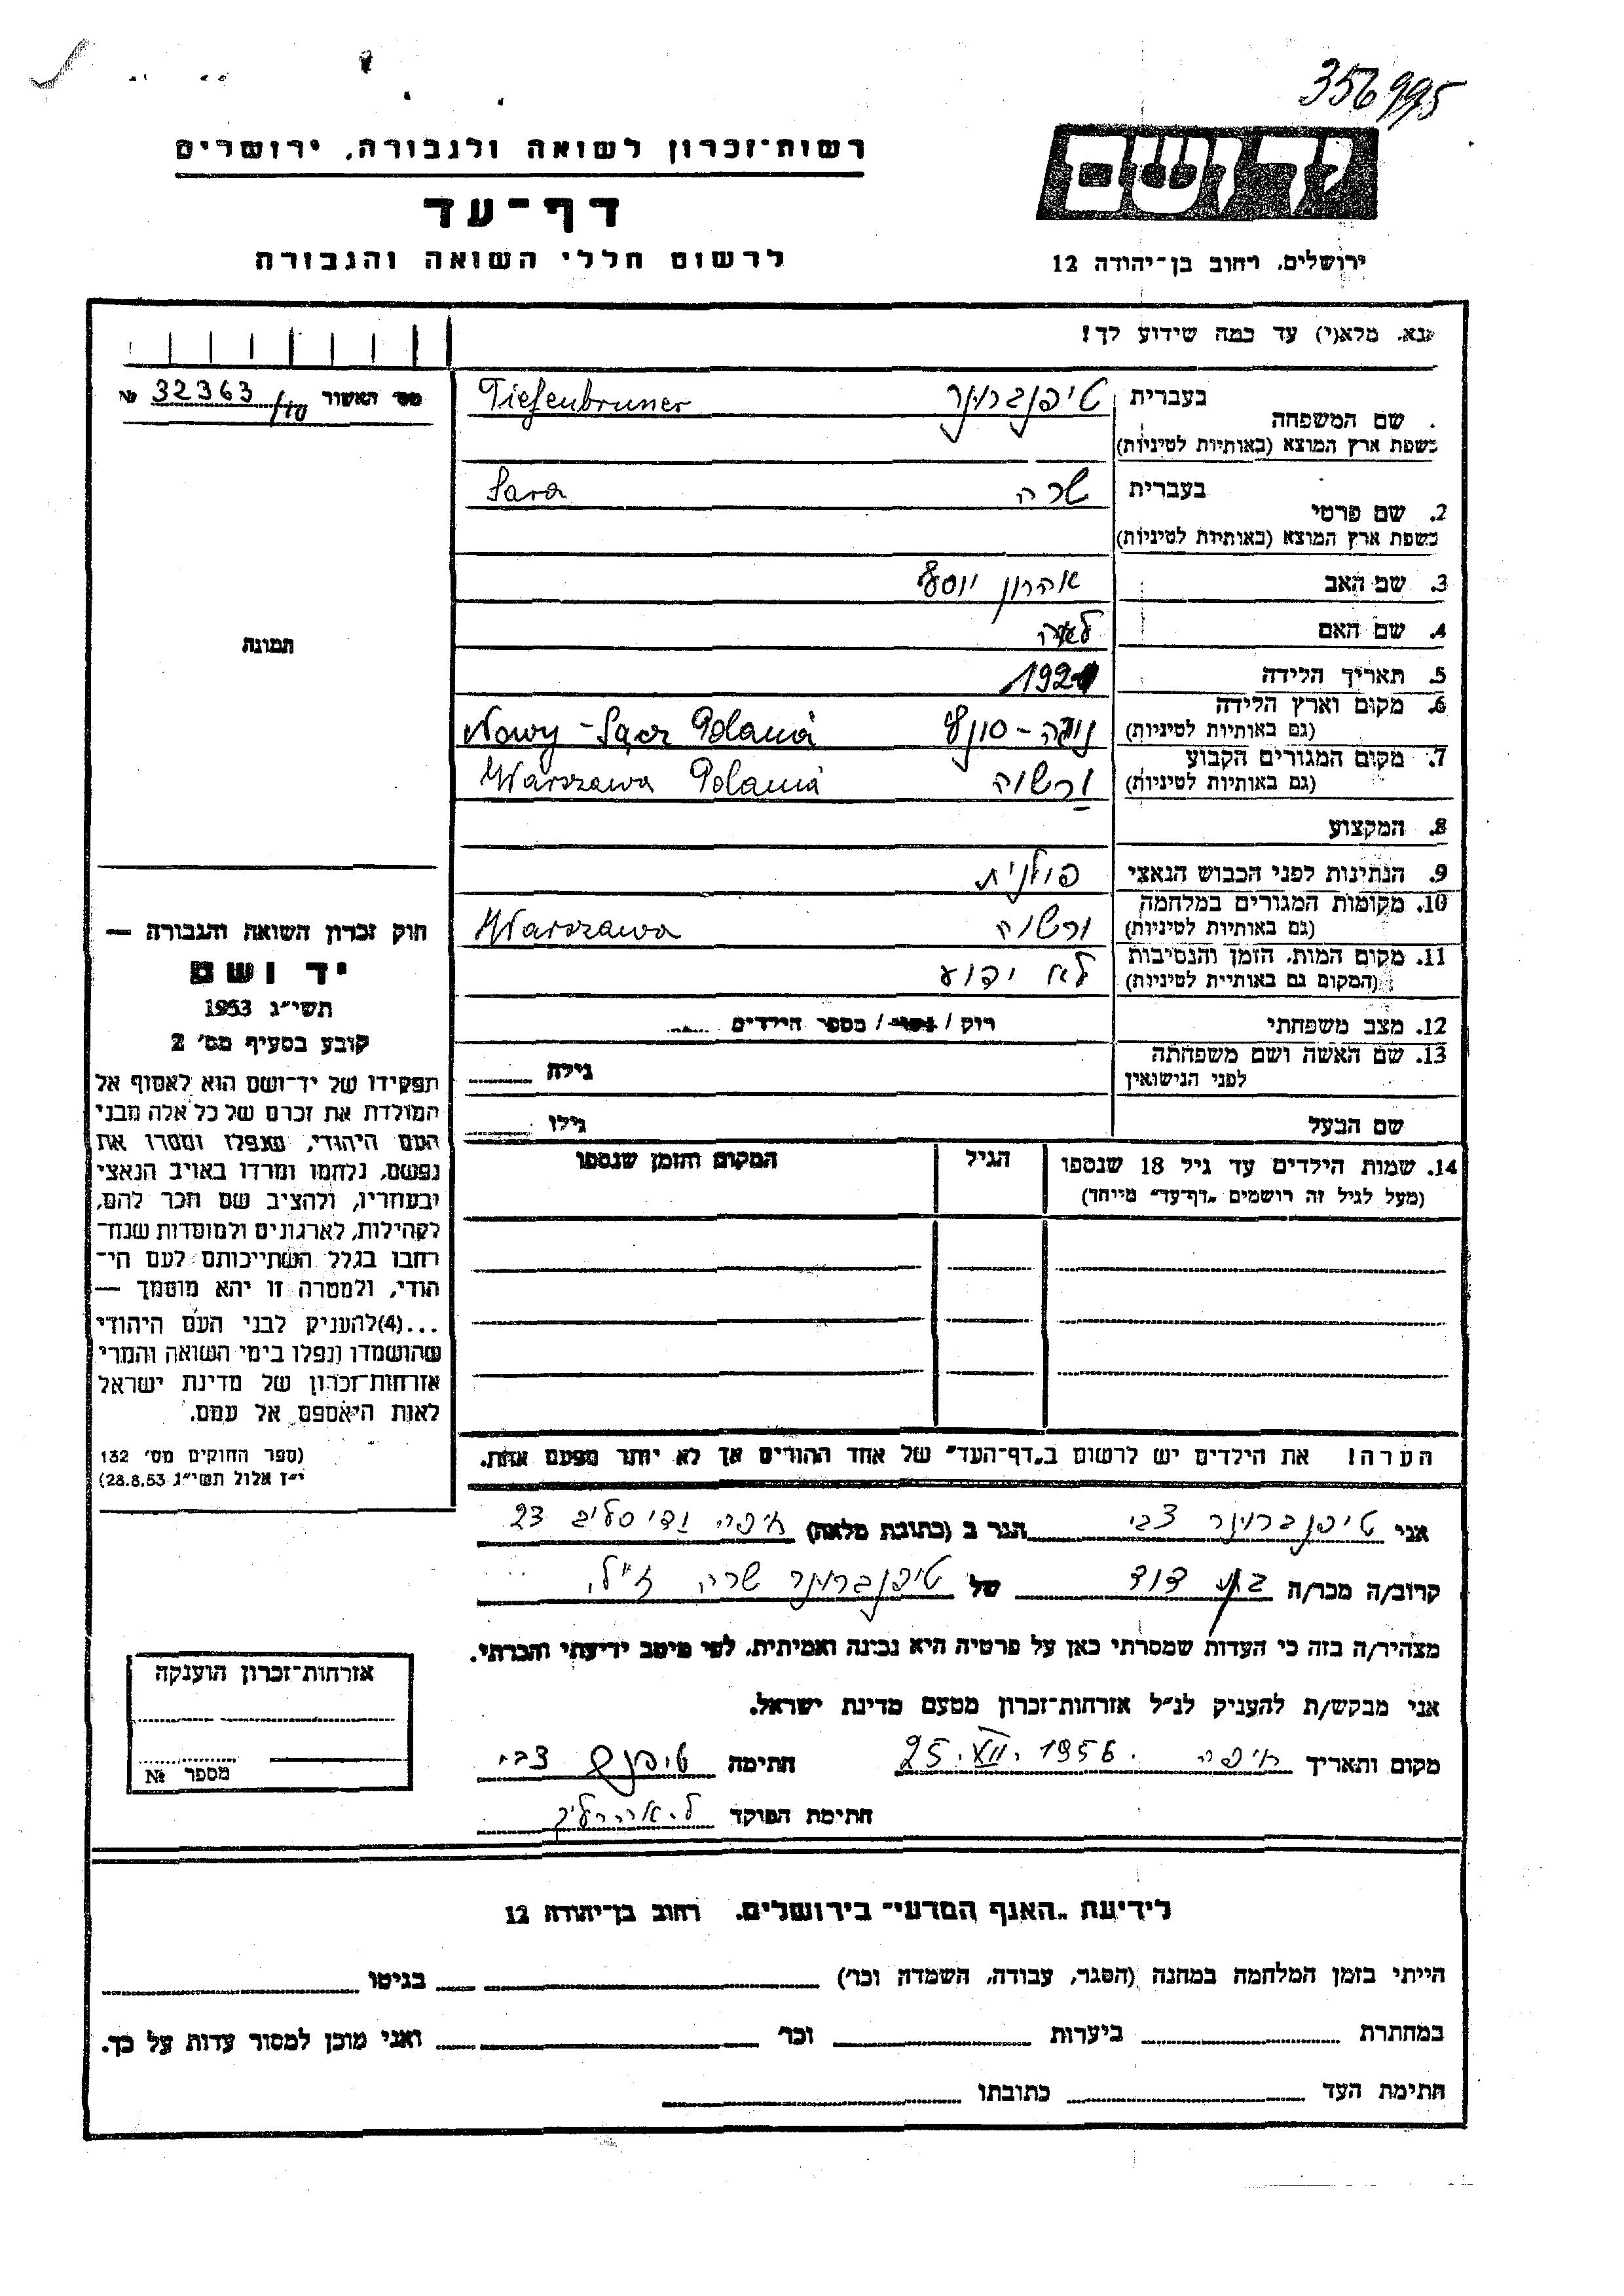 356995
רשות־זכרון לשואה ולגבורה, ירושלים
דף־עד
לרשום חללי השואה והגבורה
יד ושם
ירושלים, רחוב בן־יהודה 12
נא, מלא(י) עד כמה שידוע לך!
מס' האשור 32363/10 №
תמונה
שם המשפחה
בעברית טיפנברונר Tiefenbruner
בשפת ארץ המוצא (באותיות לטיניות)
2. שם פרטי
בעברית שרה Sara
בשפת ארץ המוצא (באותיות לטיניות)
3. שם האב אהרון יוסף
4. שם האם לאה
5. תאריך הלידה
6. מקום וארץ הלידה
(גם באותיות לטיניות) Nowy-Sącz
7. מקום המגורים הקבוע
(גם באותיות לטיניות) ורשוה Warszawa
8. המקצוע
9. הנתינות לפני הכבוש הנאצי פולנית
10. מקומות המגורים במלחמה
(גם באותיות לטיניות) ורשוה Warszawa
11. מקום המות, הזמן והנסיבות
(המקום גם באותיות לטיניות) לא ידוע
12. מצב משפחתי רוק / נשוי / מספר הילדים
13. שם האשה ושם משפחתה
לפני הנישואין גילה
שם הבעל גילו
14. שמות הילדים עד גיל 18 שנספו
(מעל לגיל זה רושמים „דף־עד" מייחד)
הגיל
המקום והזמן שנספו
הערה! את הילדים יש לרשום ב„דף־העד" של אחד ההורים אך לא יותר מפעם אחת.
חוק זכרון השואה והגבורה —
יד ושם
תשי"ג 1953
קובע בסעיף מס' 2
תפקידו של יד־ושם הוא לאסוף אל
המולדת את זכרם של כל אלה מבני
העם היהודי, שנפלו ומסרו את
נפשם, נלחמו ומרדו באויב הנאצי
ובעוזריו, ולהציב שם וזכר להם,
לקהילות, לארגונים ולמוסדות שנח־
רבו בגלל השתייכותם לעם הי־
הודי, ולמטרה זו יהא מוסמך —
...(4) להעניק לבני העם היהודי
שהושמדו ונפלו בימי השואה והמרי
אזרחות־זכרון של מדינת ישראל
לאות היאספם אל עמם.
(ספר החוקים מס' 132
י"ז אלול תשי"ג 28.8.53)
אני טיפנברונר צבי הגר ב (כתובת מלאה) חיפה 23
קרוב/ה מכר/ה בן דוד של טיפנברונר שרה ז"ל
מצהיר/ה בזה כי העדות שמסרתי כאן על פרטיה היא נכונה ואמיתית, לפי מיטב ידיעתי והכרתי.
אני מבקש/ת להעניק לנ"ל אזרחות־זכרון מטעם מדינת ישראל.
מקום ותאריך חיפה 25.VII.1956 חתימה צבי
חתימת הפוקד
אזרחות־זכרון הוענקה
מספר №
לידיעת „האגף המדעי" בירושלים, רחוב בן־יהודה 12
הייתי בזמן המלחמה במחנה (הסגר, עבודה, השמדה וכו') בגיטו
במחתרת ביערות וכו' ואני מוכן למסור עדות על כך.
חתימת העד כתובתו